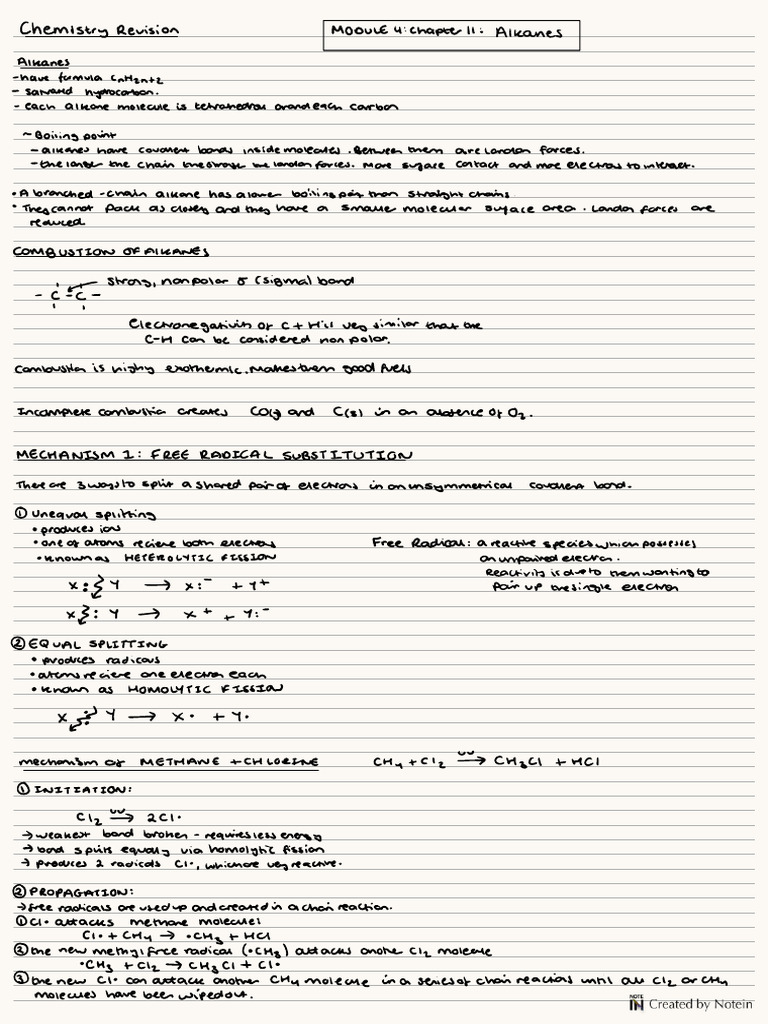 Chemistry Revision
MODULE 4: Chapter 11: Alkanes
Alkanes
- have formula CnH2n+2
- saturated hydrocarbon.
- each alkane molecule is tetrahedral around each carbon
~ Boiling point
- alkanes have covalent bonds inside molecules. Between them are london forces.
- the larger the chain the stronger the london forces. More surface contact and more electrons to interact.
• A branched-chain alkane has a lower boiling point than straight chains
• They cannot pack as closely and they have a smaller molecular surface area. London forces are
reduced
COMBUSTION OF ALKANES
strong, nonpolar σ (sigma) bond
- C - C -
Electronegativity of C + H is very similar that the
C-H can be considered non polar.
Combustion is highly exothermic. Makes them good fuels
Incomplete combustion creates CO(g) and C(s) in an absence of O2.
MECHANISM 1: FREE RADICAL SUBSTITUTION
There are 3 ways to split a shared pair of electrons in an unsymmetrical covalent bond.
① Unequal splitting
• produces ions
• one of atoms recieve both electrons
• known as HETEROLYTIC FISSION
X : Y → X:⁻ + Y⁺
X : Y → X⁺ + Y:⁻
Free Radical: a reactive species which possesses
an unpaired electron.
Reactivity is due to them wanting to
pair up the single electron
② EQUAL SPLITTING
• produces radicals
• atoms recieve one electron each
• known as HOMOLYTIC FISSION
X : Y → X• + Y•
mechanism of METHANE + CHLORINE
CH4 + Cl2 →UV CH3Cl + HCl
① INITIATION:
Cl2 →UV 2Cl•
→ weakest bond broken - requires less energy
→ bond splits equally via homolytic fission
→ produces 2 radicals Cl•, which are very reactive.
② PROPAGATION:
→ free radicals are used up and created in a chain reaction.
① Cl• attacks methane molecule:
Cl• + CH4 → •CH3 + HCl
② the new methyl free radical (•CH3) attacks another Cl2 molecule
•CH3 + Cl2 → CH3Cl + Cl•
③ the new Cl• can attack another CH4 molecule in a series of chain reactions until all Cl2 or CH4
molecules have been wiped out.
NOTE IN Created by Notein